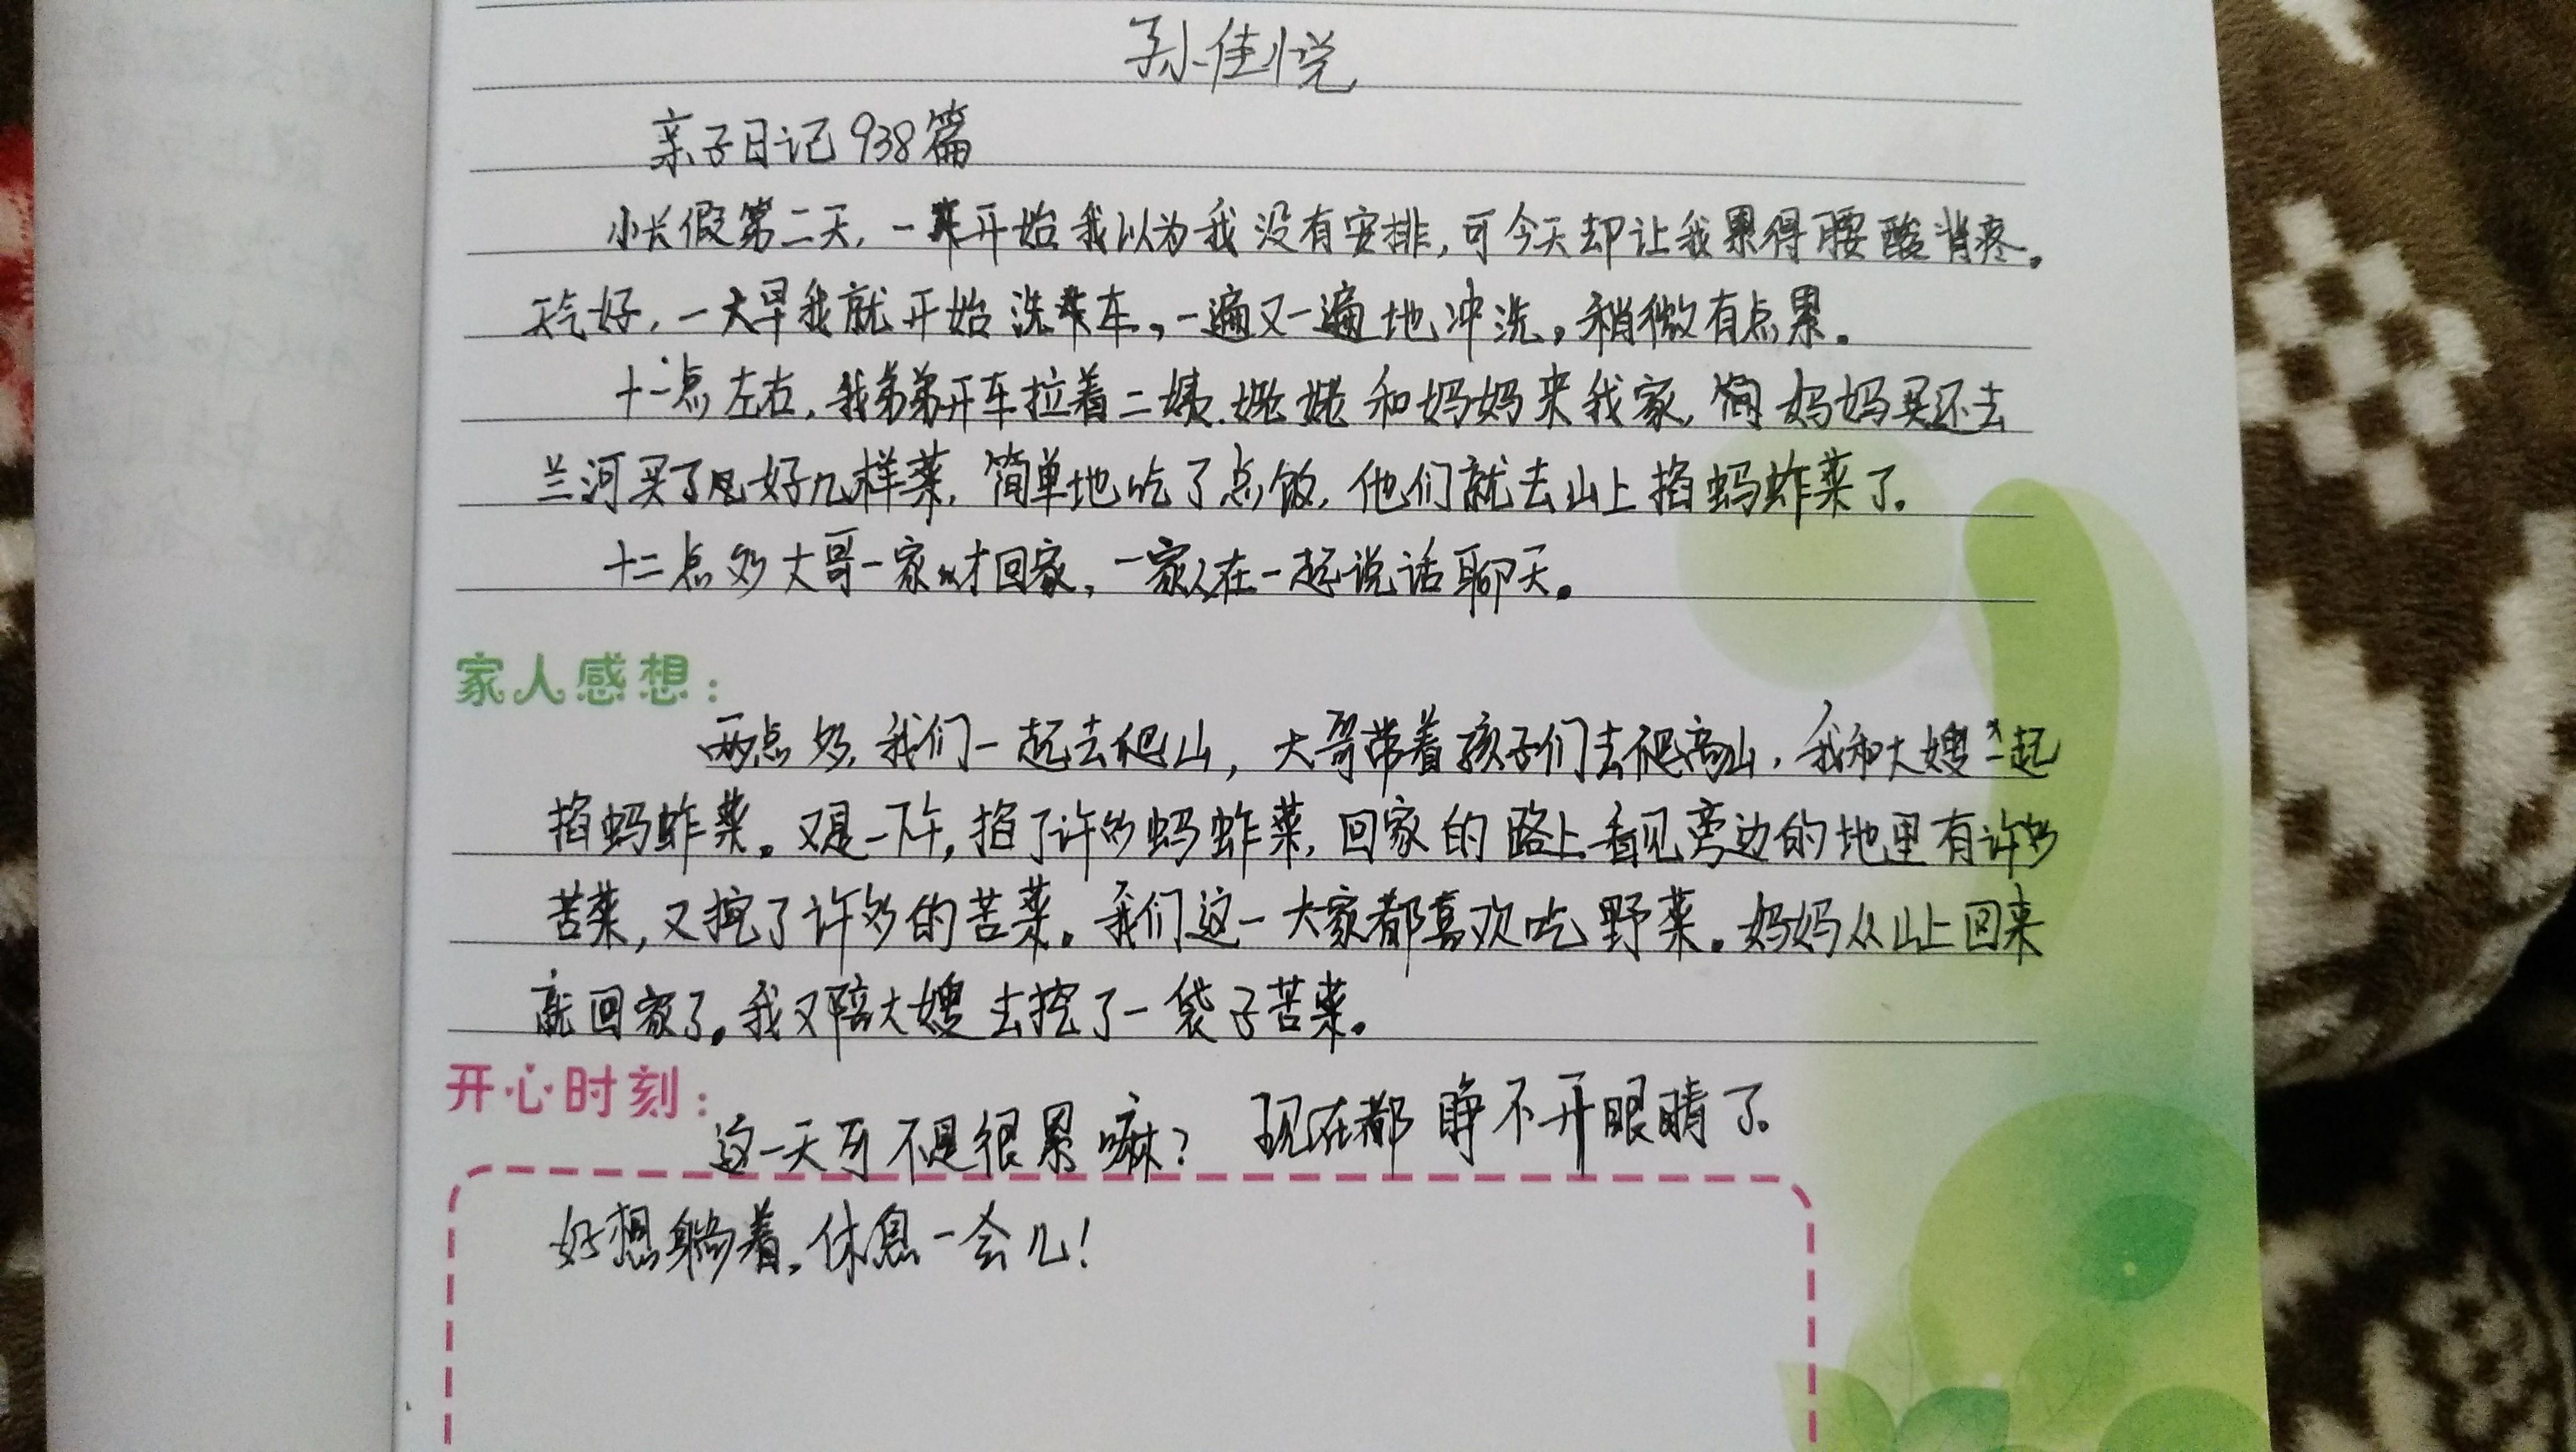 孙佳悦
亲子日记938篇
小长假第二天，一开始我以为我没有安排，可今天却让我累得腰酸背疼。
天气好，一大早我就开始洗车，一遍又一遍地冲洗，稍微有点累。
十一点左右，我弟弟开车拉着二姨、姥姥和妈妈来我家，妈妈还去
兰河买了好几样菜，简单地吃了点饭，他们就去山上掐蚂蚱菜了。
十二点多大哥一家才回家，一家人在一起说话聊天。
家人感想：
两点多，我们一起去爬山，大哥带着孩子们去爬高山，我和大嫂一起
掐蚂蚱菜。又是一下午，掐了许多蚂蚱菜，回家的路上看见旁边的地里有许多
苦菜，又挖了许多的苦菜。我们这一大家都喜欢吃野菜。妈妈从山上回来
就回家了。我又陪大嫂去挖了一袋子苦菜。
开心时刻：
这一天可不是很累嘛？现在都睁不开眼睛了。
好想躺着，休息一会儿！